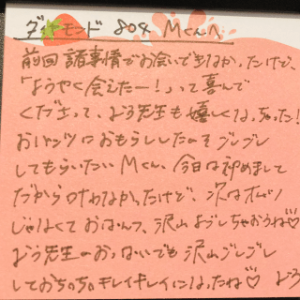 ダイヤモンド 804 Mくんへ
前回 諸事情でお会いできなかったけど、
「ようやく会えたー!」って喜んで
くださって、よう先生も嬉しくなっちゃった!
おパンツにおもらししたのをブレブレ
してもらいたいMくん、今日は初めまして
だから叶わなかったけど、次はオムツ
じゃなくておぱんつ、沢山よブしちゃおうね♡
よう先生のおっぱいでも沢山ブレブレ
しておちっち。キレイキレイになったね♡ よう